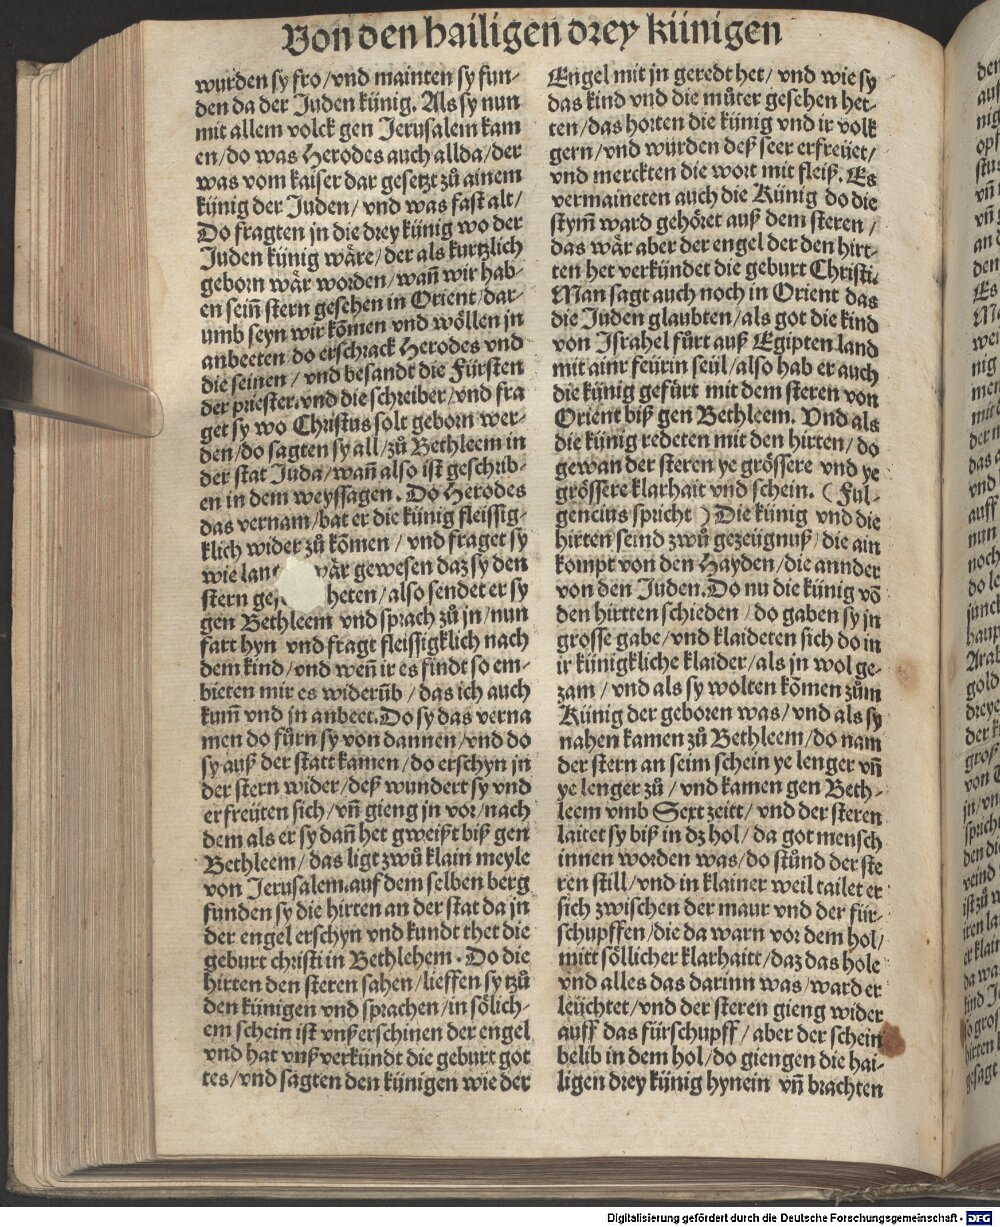 Von den hailigen drey künigen
wurden sy fro/vnd mainten sy fun-
den da der Juden künig. Als sy nun
mit allem volck gen Jerusalem kam
en/do was Herodes auch allda/der
was vom kaiser dar gesetzt zů ainem
künig der Juden/vnd was fast alt/
Do fragten jn die drey künig wo der
Juden künig wäre/der als kurtzlich
geborn wär worden/wañ wir hab-
en seiñ stern gesehen in Orient/dar-
umb seyn wir kõmen vnd wöllen jn
anbeeten/do erschrack Herodes vnd
die seinen/vnd besandt die Fürsten
der priester.vnd die schreiber/vnd fra
get sy wo Christus solt geborn wer-
den/do sagten sy all/zů Bethleem in
der stat Juda/wañ also ist geschrib-
en in dem weyssagen. Do Herodes
das vernam/bat er die künig fleissig-
klich wider zů kõmen/vnd fraget sy
wie lan wär gewesen daz sy den
stern ge heten/also sendet er sy
gen Bethleem vnd sprach zů jn/nun
fart hyn vnd fragt fleissigklich nach
dem kind/vnd weñ ir es findt so em-
bieten mir es widerũb/das ich auch
kum̃ vnd jn anbeet.Do sy das verna
men do fůrn sy von dannen/vnd do
sy auß der statt kamen/do erschyn jn
der stern wider/deß wundert sy vnd
erfreüten sich/vñ gieng jn vor/nach
dem als er sy dañ het gweißt biß gen
Bethleem/das ligt zwů klain meyle
von Jerusalem.auf dem selben berg
funden sy die hirten an der stat da jn
der engel erschyn vnd kundt thet die
geburt christi in Bethlehem. Do die
hirten den steren sahen/lieffen sy tzů
den künigen vnd sprachen/in sölich-
em schein ist vnß erschinen der engel
vnd hat vnß verkündt die geburt got
tes/vnd sagten den künigen wie der
Engel mit jn geredt het/vnd wie sy
das kind vnd die můter gesehen het-
ten/das horten die künig vnd ir volk
gern/vnd wurden deß seer erfreüet/
vnd merckten die wort mit fleiß. Es
vermaineten auch die Künig do die
stym̃ ward gehöret auß dem steren/
das wär aber der engel der den hirt-
ten het verkündet die geburt Christi.
Man sagt auch noch in Orient das
die Juden glaubten/als got die kind
von Israhel fůrt auß Egipten land
mit ainr feürin seül/also hab er auch
die künig gefürt mit dem steren von
Orient biß gen Bethleem. Vnd als
die künig redeten mit den hirten/do
gewan der steren ye grössere vnd ye
grössere klarhait vnd schein. (Ful-
gencius spricht) Die künig vnd die
hirten seind zwů gezeügnuß/die ain
kompt von den Hayden/die annder
von den Juden.Do nu die künig võ
den hirtten schieden/do gaben sy jn
grosse gabe/vnd klaideten sich do in
ir künigkliche klaider/als jn wol ge-
zam/vnd als sy wolten kõmen zům
Künig der geboren was/vnd als sy
nahen kamen zů Bethleem/do nam
der stern an seim schein ye lenger vñ
ye lenger zů/vnd kamen gen Beth-
leem vmb Sext zeitt/vnd der steren
laitet sy biß in dz hol/da got mensch
innen worden was/do stůnd der ste
ren still/vnd in klainer weil tailet er
sich zwischen der maur vnd der für-
schupffen/die da warn vor dem hol/
mitt söllicher klarhaitt/daz das hole
vnd alles das darinn was/ward er
leüchtet/vnd der steren gieng wider
auff das fürschupff/aber der schein
belib in dem hol/do giengen die hai-
ligen drey künig hynein vñ brachten
Digitalisierung gefördert durch die Deutsche Forschungsgemeinschaft - DFG